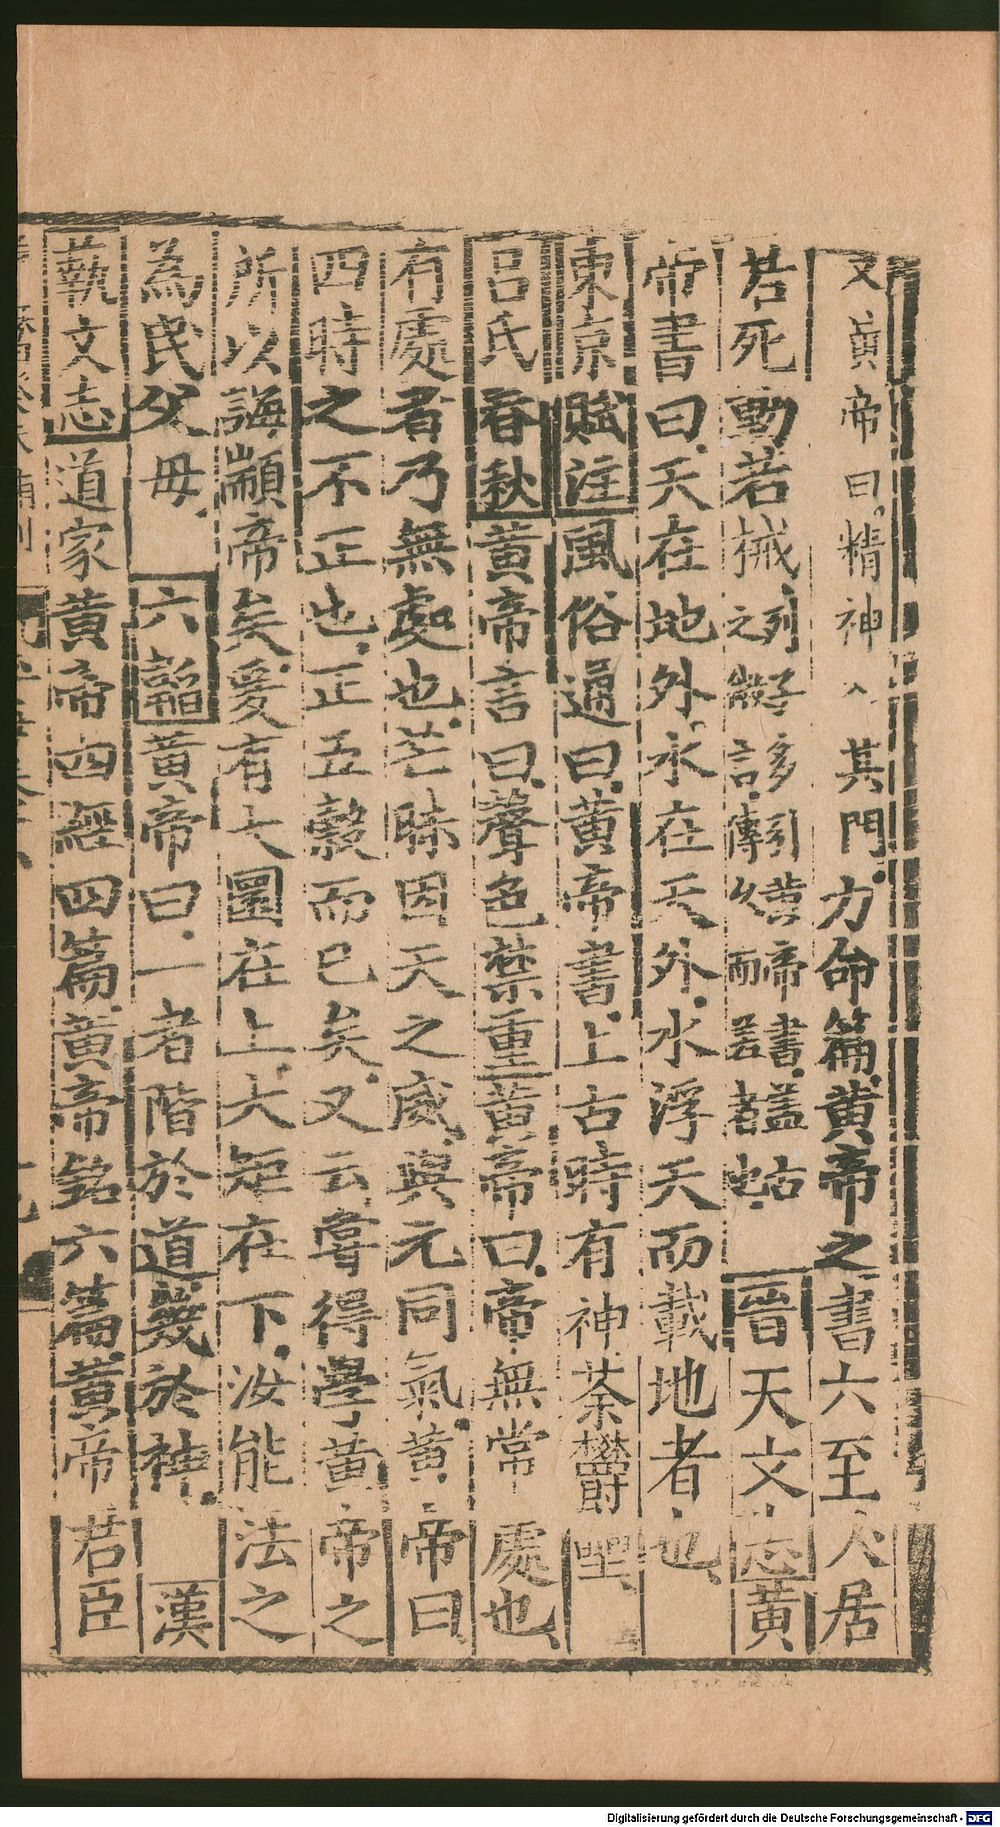 又黃帝曰精神入其門力命篇黃帝之書六至人居
若死動若械列子多引黃帝書蓋古之微言傳久而譌舛也晉天文志黃
帝書曰天在地外水在天外水浮天而載地者也
東京賦注風俗通曰黃帝書上古時有神荼鬱壘
呂氏春秋黃帝言曰聲色禁重黃帝曰帝無常處也
有處者乃無處也芒昧因天之威與元同氣黃帝曰
四時之不正也正五穀而已矣又云嘗得學黃帝之
所以誨顓帝矣爰有大圜在上大矩在下汝能法之
為民父母六韜黃帝曰一者階於道幾於神漢
蓺文志道家黃帝四經四篇黃帝銘六篇黃帝君臣
Digitalisierung gefördert durch die Deutsche Forschungsgemeinschaft - DFG